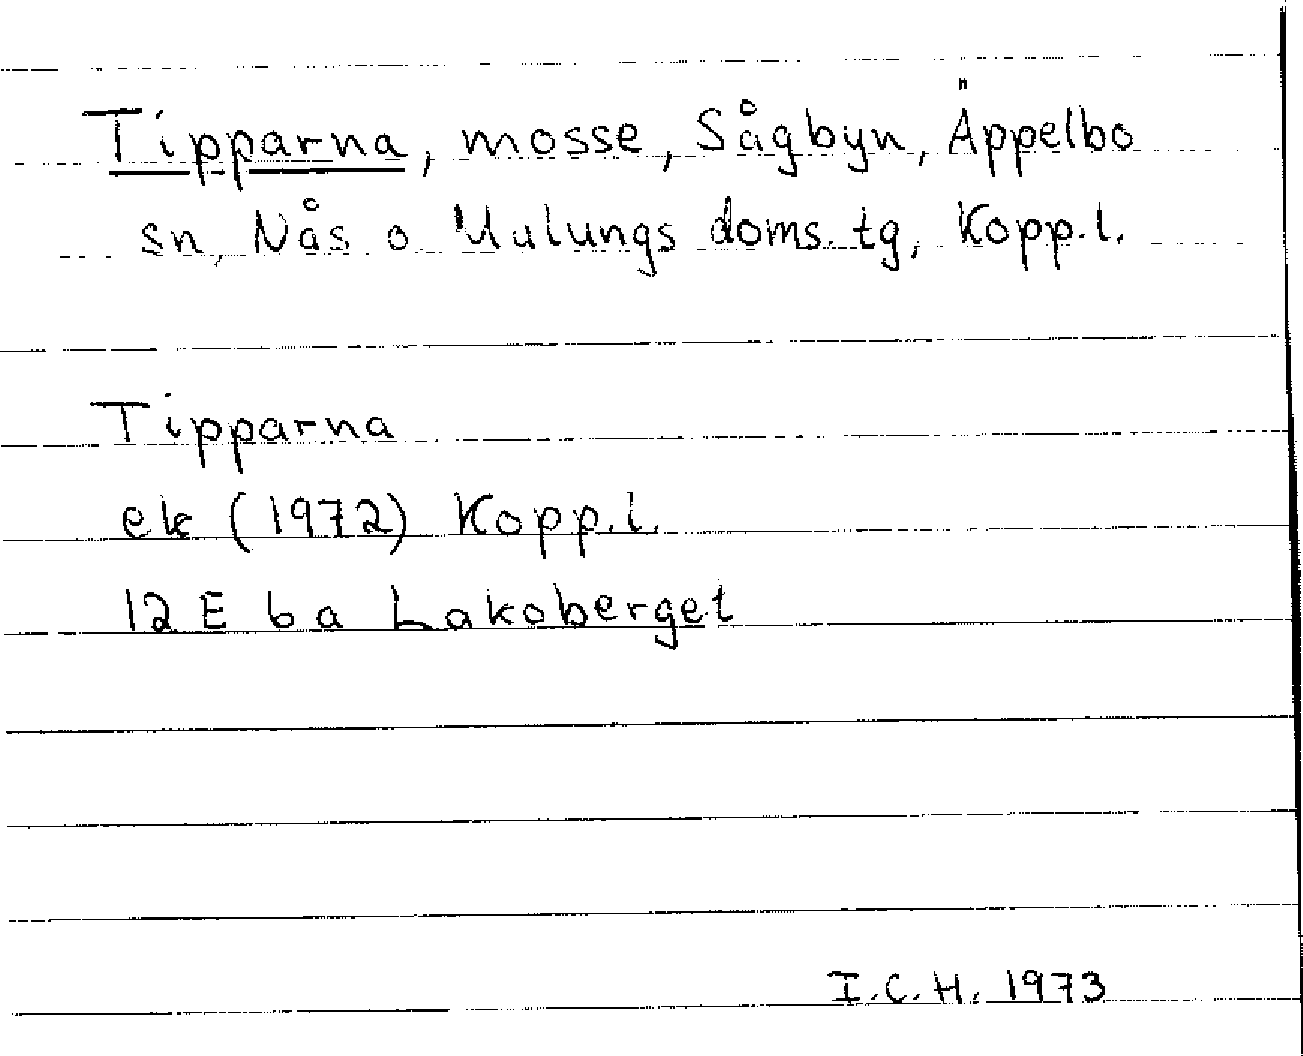 Tipparna, mosse, Sågbyn, Äppelbo
sn, Nås o Malungs doms. tg, Kopp.l.
Tipparna
ek (1972) Kopp.l.
12 E 6 a Lakoberget
I.C.H. 1973